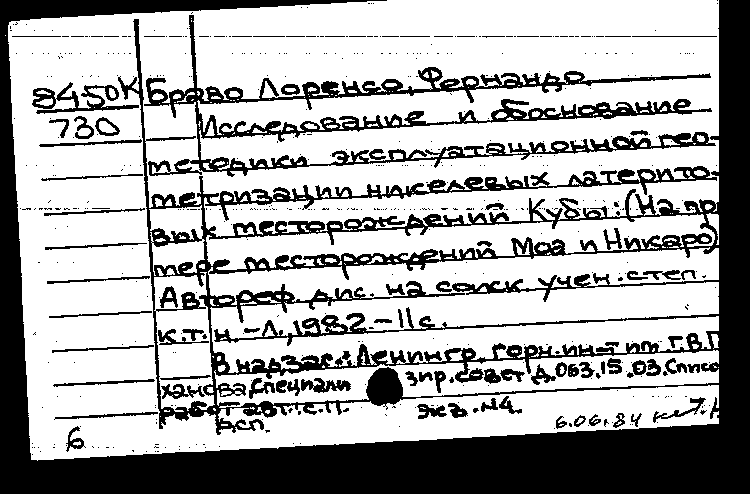 8450К Браво Лоренсо, Фернандо
730 Исследование и обоснование
методики эксплуатационной гео-
метризации никелевых латерито-
вых месторождений Кубы: (На при
мере месторождений Моа и Никаро)
Автореф. дис. на соиск. учен. степ.
к.т.н. - Л., 1982. - 11 с.
В надзаг.: Ленингр. горн. ин-т им. Г.В.П
ханова, Специали зир. совет Д.063.15.03. Списо
работ авт.: с. 11.
ДСП. Экз. №4.
6 6.06.84